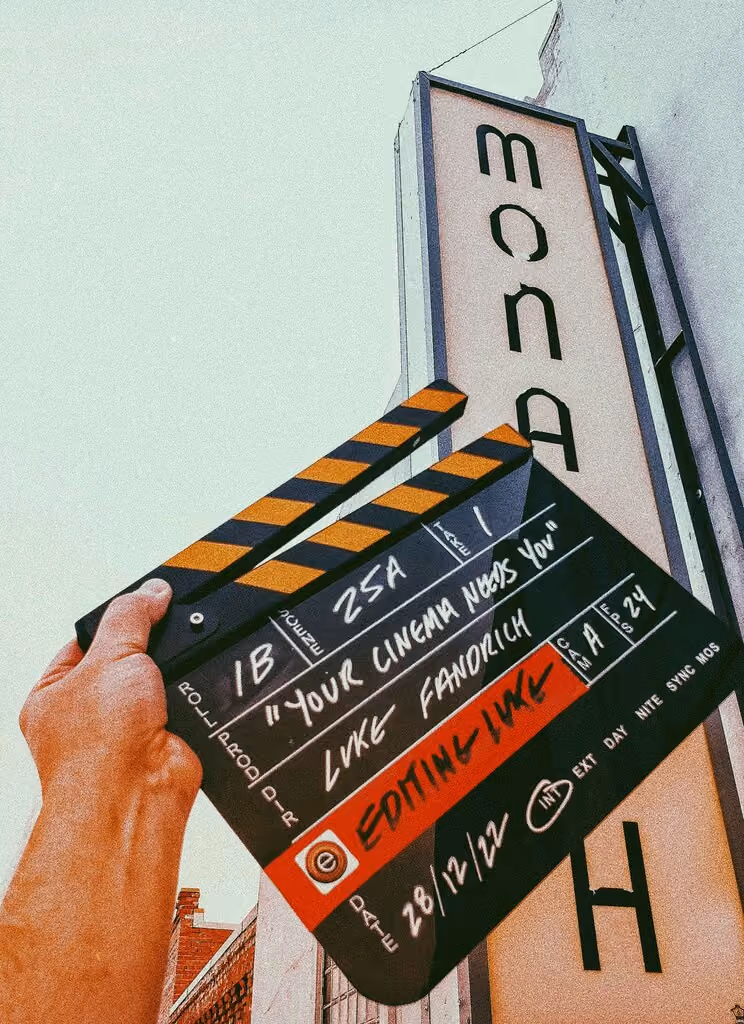 monA
H
ROLL 1B SCENE 25A TAKE 1
PROD "YOUR CINEMA NEEDS YOU"
DIR LUKE FANDRICH
CAM A FPS 24
e EDITING LUKE
DATE 28/12/22 INT EXT DAY NITE SYNC MOS